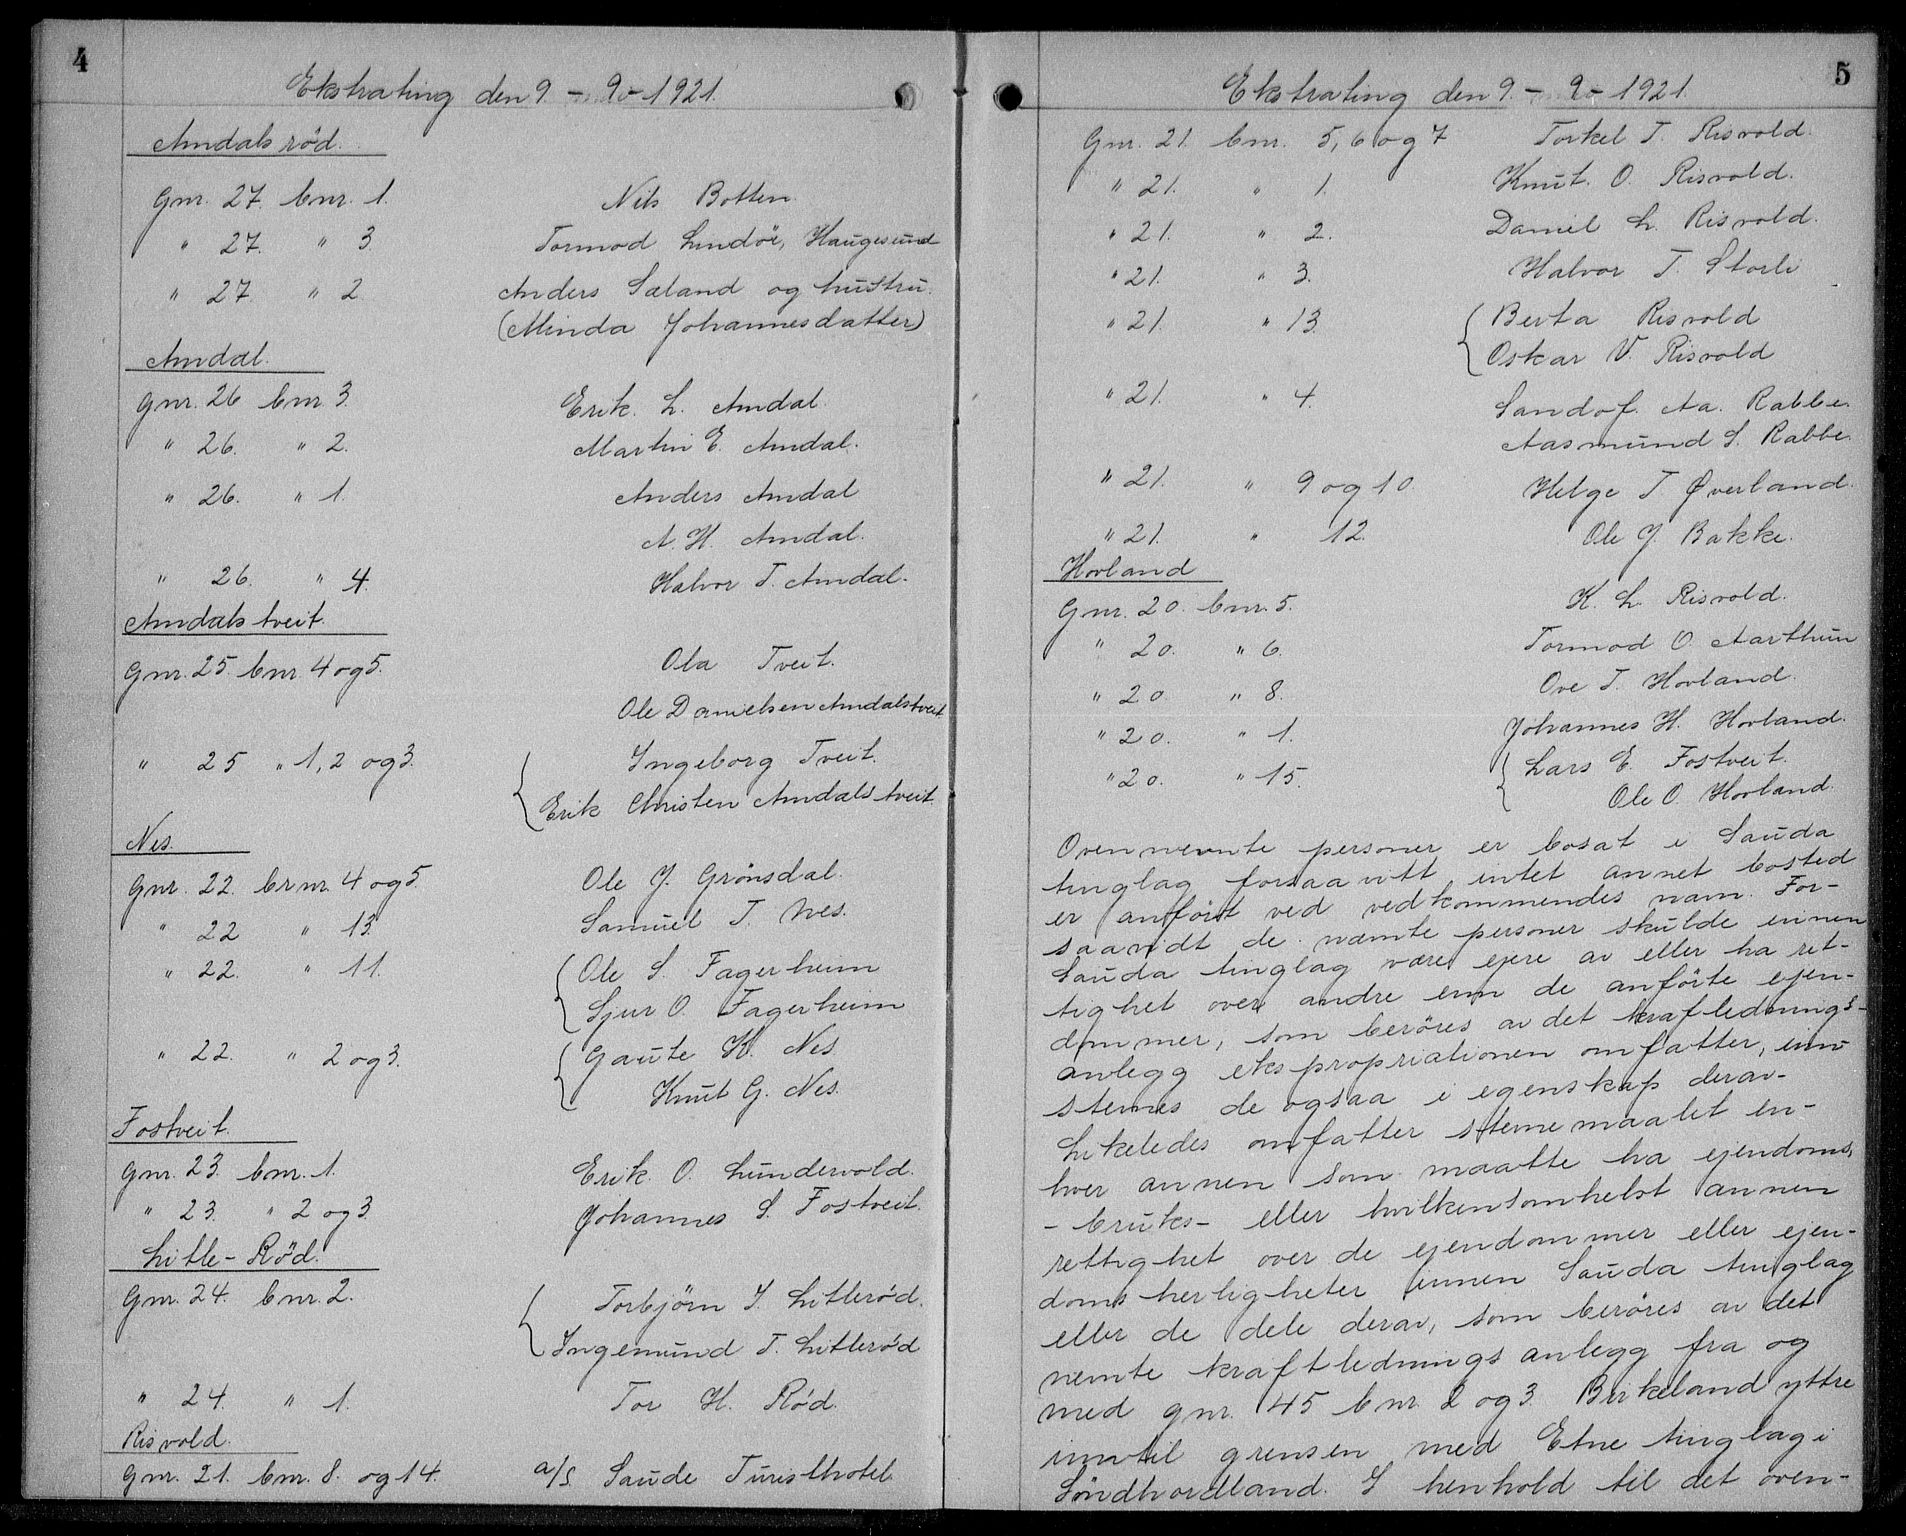 4
Ekstrating den 9 - 9 - 1921.
Amdalsrød.
Gnr. 27. bnr. 1. Nils Botten
" 27. " 3. Tormod Lindøe, Haugesund
" 27 " 2. Anders Sæland og hustru.
(Minda Johannesdatter)
Amdal.
Gnr. 26 bnr. 3. Erik. L. Amdal.
" 26. " 2. Martin E. Amdal.
" 26. " 1. Anders Amdal
A. H. Amdal.
" 26. " 4. Halvor T. Amdal.
Amdalstveit.
Gnr. 25. bnr 4 og 5. Ola Tveit.
Ole Danielsen Amdalstveit
" 25 " 1, 2 og 3. Ingeborg Tveit.
Erik Christen Amdalstveit.
Nes.
Gnr. 22. brnr. 4 og 5. Ole J. Grönsdal.
" 22 " 13. Samuel T. Nes.
" 22. " 11. Ole S. Fagerheim
Sjur O. Fagerheim
" 22. " 2 og 3. Gaute K. Nes
Knut G. Nes.
Fostveit.
Gnr. 23. bnr. 1. Erik. O. Lundevold.
" 23. " 2 og 3. Johannes S. Fostveit.
Litle-Rød.
Gnr. 24. bnr. 2. Torbjörn I. Litlerød.
Ingemund T. Litlerød
" 24. " 1. Tor H. Rød.
Risvold.
Gnr. 21. bnr. 8. og 14. a/s. Saude Turisthotel.
5
Ekstrating den 9. - 9 - 1921.
Gnr. 21. bnr. 5, 6 og 7 Torkel T. Risvold.
" 21. " 1. Knut. O. Risvold.
" 21. " 2. Daniel L. Risvold.
" 21. " 3. Halvor T. Storli
" 21. " 13. Berta Risvold
Oskar V. Risvold
" 21. " 4. Sandof. Aa. Rabbe.
Aasmund S. Rabbe.
" 21. " 9 og 10. Helge T. Øverland.
" 21. " 12. Ole J. Bakke.
Hovland
Gnr. 20. bnr. 5. K. L. Risvold.
" 20. " 6. Tormod O. Aarthun
" 20 " 8. Ove T. Hovland.
" 20. " 1. Johannes H. Hovland.
" 20. " 15. Lars E. Fostveit.
Ole O. Hovland.
Ovennevnte personer er bosat i Sauda
tinglag forsaavitt intet annet bosted
er anført ved vedkommendes navn. For-
saavidt de nævnte personer skulde innen
Sauda tinglag være ejere av eller ha ret-
tighet over andre enn de anførte ejen-
dommer, som berøres av det kraflednings-
anlegg ekspropriationen omfatter, inn-
stevnes de ogsaa i egenskap derav-
Likeledes omfatter stevnemaalet en-
hver annen som maatte ha ejendoms,
- bruks- eller hvilkensomhelst annen
rettighet over de ejendommer eller ejen-
domsherligheter innen Sauda tinglag
eller de dele derav, som berøres av det
nevnte kraftledningsanlegg fra og
med gnr. 45 bnr. 2 og 3 Birkeland yttre
inntil grensen med Etne tinglag i
Søndhordland. I henhold til det oven-